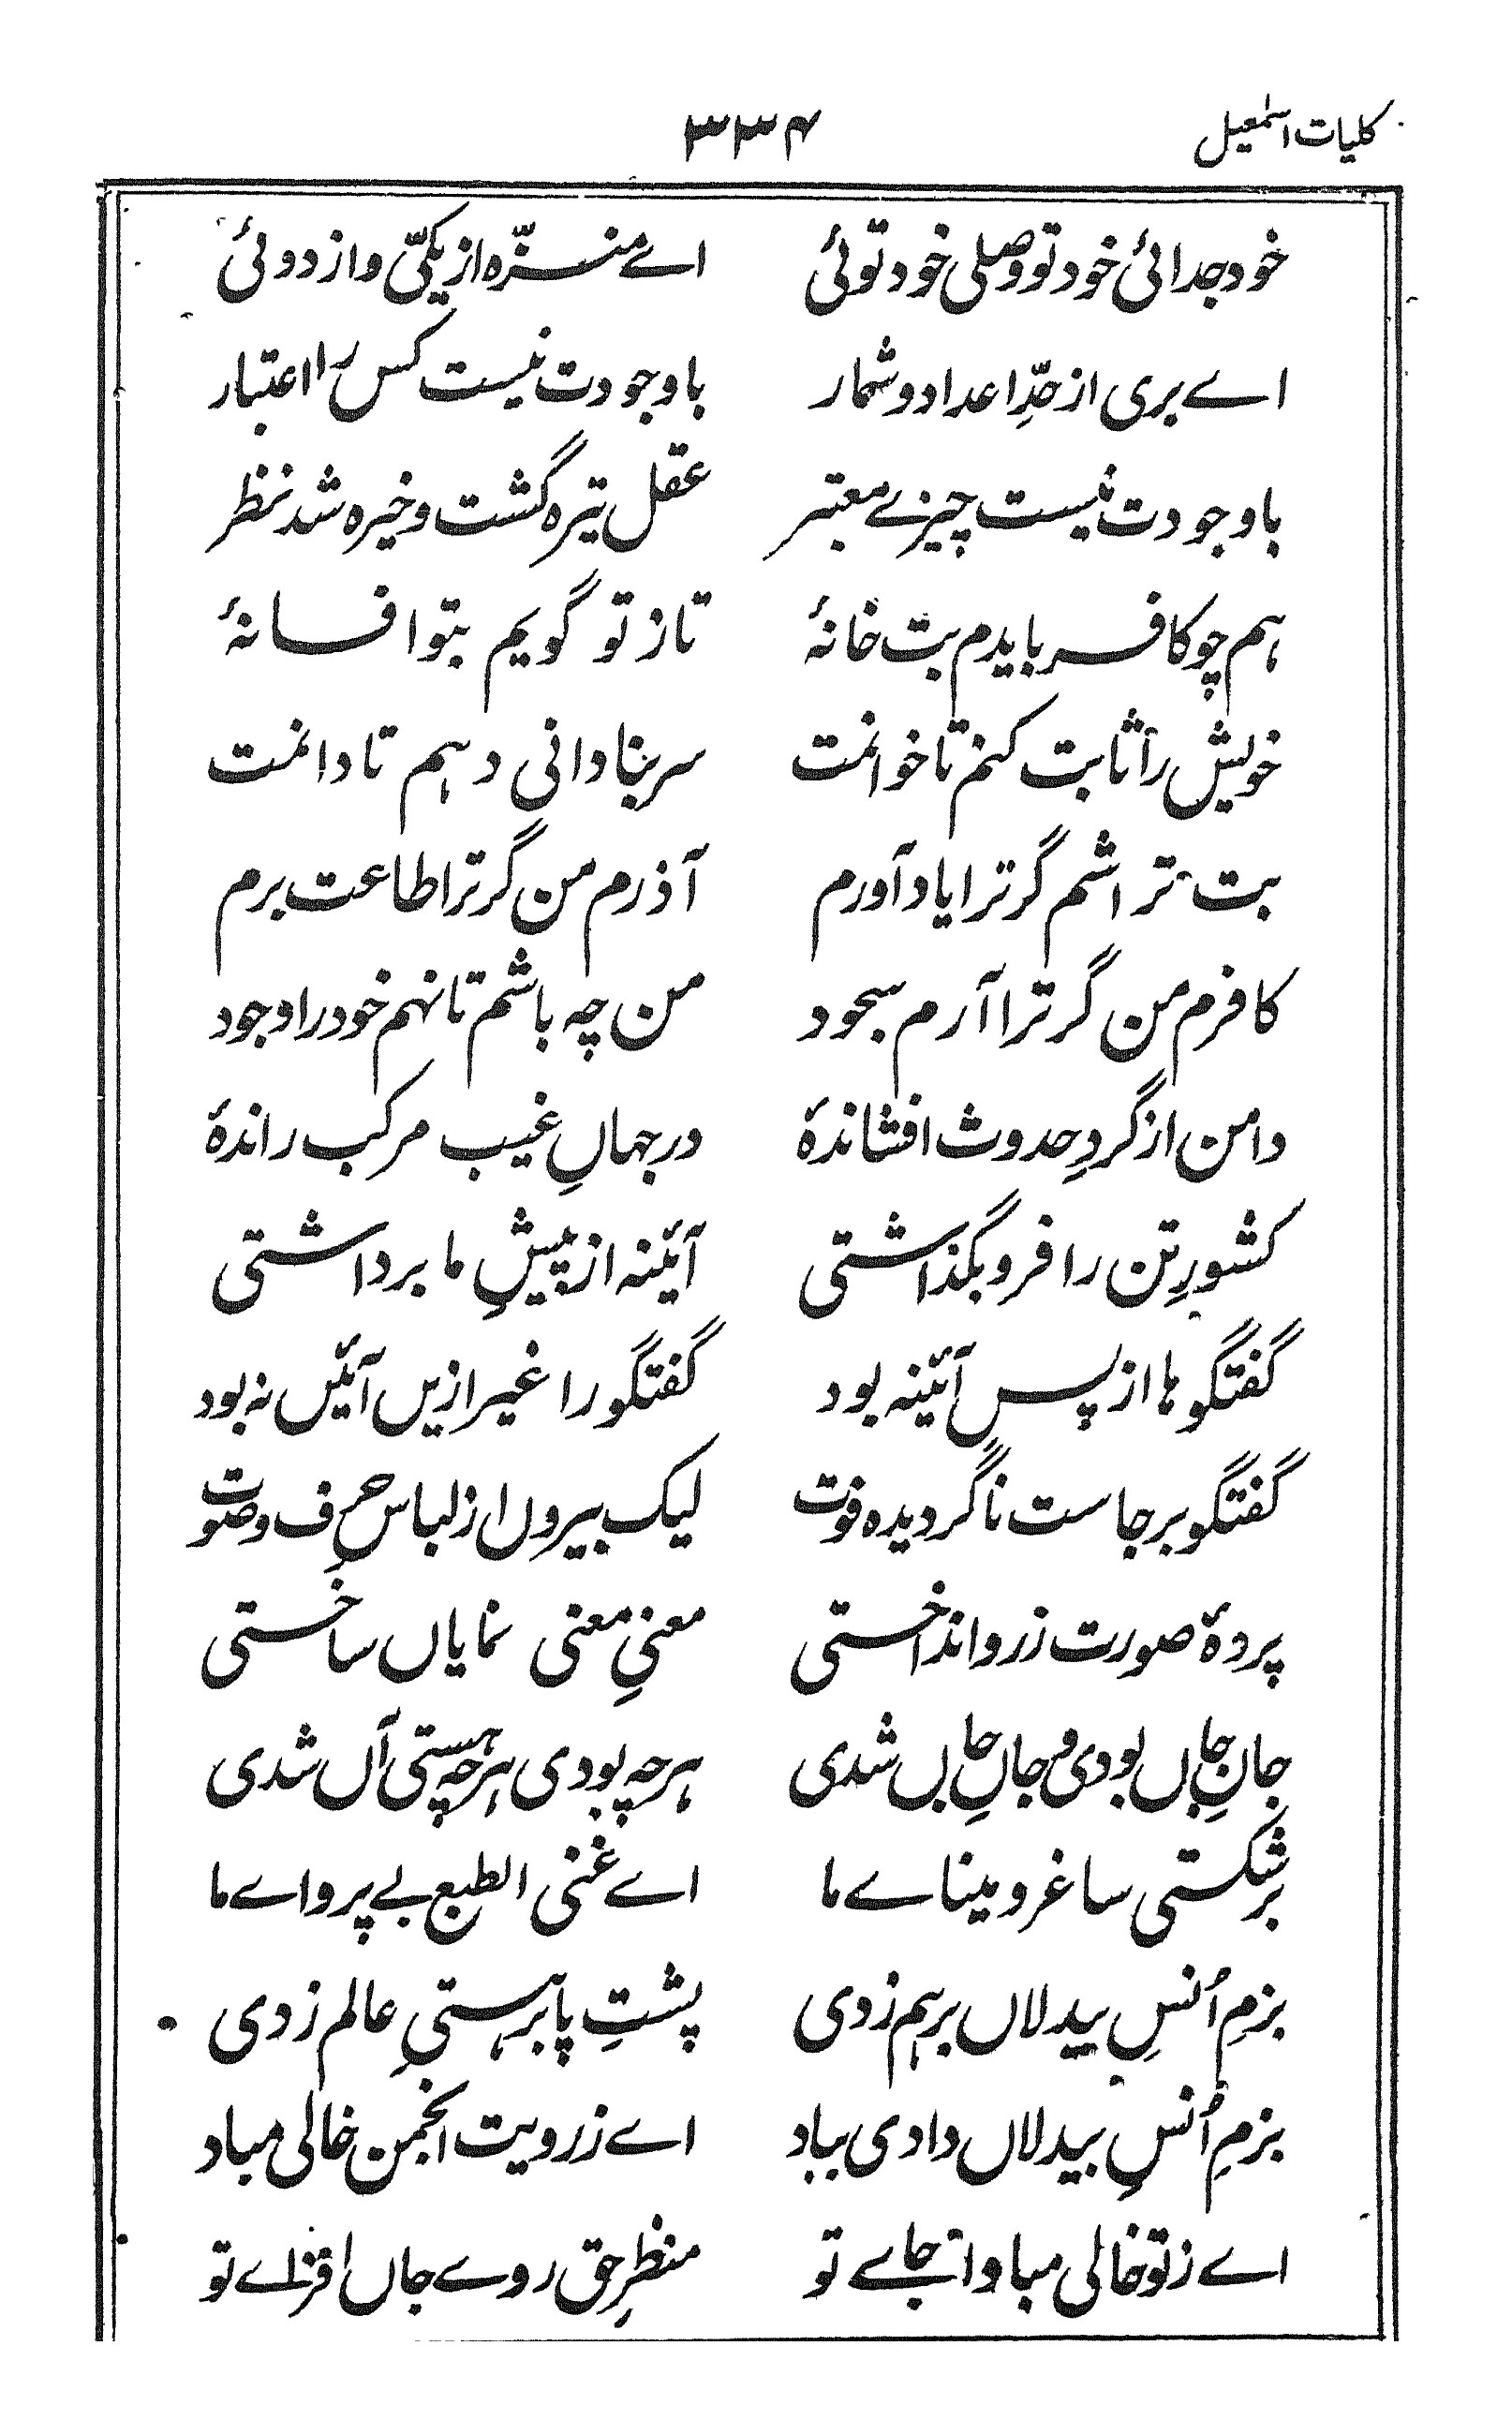 کلیات اسمٰعیل ۳۳۴
خود جدائی خود تو وصلی خود توئی اے منزّہ از یکیّ و از دوئی
اے بری از حدِّ اعداد و شمار با وجودت نیست کس را اعتبار
با وجودت نیست چیزے معتبر عقل تیرہ گشت و خیرہ شد نظر
ہم چو کافر بایدم بت خانۂ تا ز تو گویم بتو افسانۂ
خویش را ثابت کنم تا خوانمت سر بنادانی دہم تا دانمت
بت تراشم گر ترا یاد آورم آذرم من گر ترا طاعت برم
کافرم من گر ترا آرم سجود من چہ باشم تا نہم خود را وجود
دامن از گردِ حدوث افشاندۂ در جہاںِ غیب مرکب راندۂ
کشورِ تن را فرو بگذاشتی آئینہ از پیشِ ما برداشتی
گفتگو ہا از پسِ آئینہ بود گفتگو را غیر ازیں آئیں نہ بود
گفتگو برجاست ناگردیدہ فوت لیک بیروں از لباسِ حرف و صوت
پردۂ صورت ز رو انداختی معنیِ معنی نمایاں ساختی
جانِ جاں بودی و جانِ جاں شدی ہرچہ بودی ہرچہ ہستی آں شدی
بر شکستی ساغر و میناے ما اے غنی الطبع بے پرواے ما
بزمِ اُنسِ بیدلاں برہم زدی پشتِ پا بر ہستیِ عالم زدی
بزمِ اُنسِ بیدلاں دادی بباد اے ز رویت انجمن خالی مباد
اے ز تو خالی مبادا جاے تو منظرِ حق روے جاں افزاے تو